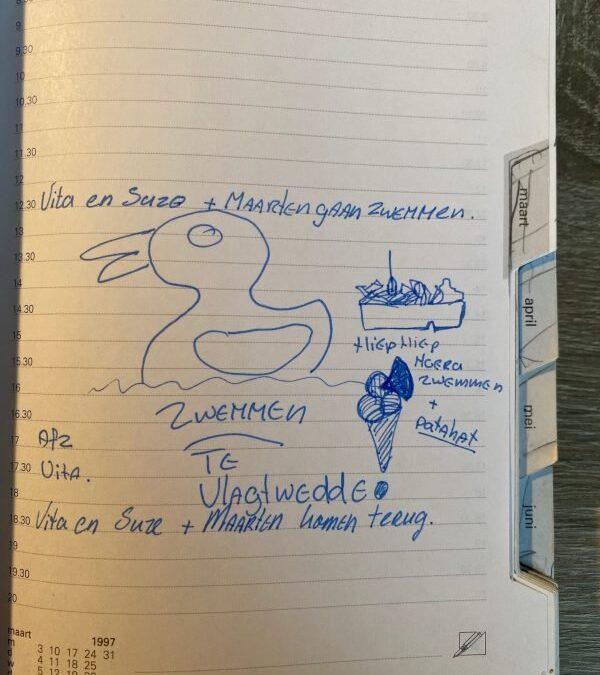 9.30
10
10.30
11
11.30
12
12.30
Vita en Suze + MAARTEN gaan zwemmen.
13
13.30
14
14.30
15
15.30
16
16.30
17
17.30
18
18.30
19
19.30
20
Hiep Hiep
Hoera
zwemmen
+
patahat
ZWEMMEN
TE
Vlagtwedde
Afz
Vita.
Vita en Suze + Maarten komen terug.
maart 1997
m 3 10 17 24 31
d 4 11 18 25
w 5 12 19 26
maart
april
mei
juni